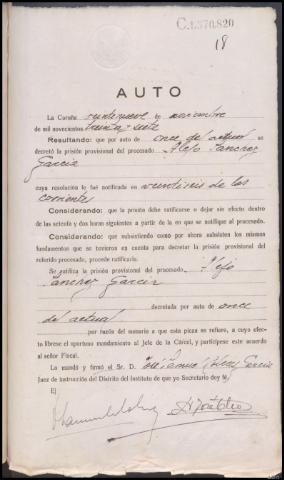 C.1.370.820
18
AUTO
La Coruña veintinueve de noviembre
de mil novecientos treinta y siete
Resultando: que por auto de once del actual se
decretó la prisión provisional del procesado Alejo Sanchez
Garcia
cuya resolución le fué notificada en veintiseis de los
corrientes
Considerando: que la prisión debe ratificarse o dejar sin efecto dentro
de las setenta y dos horas siguientes a partir de la en que se notifique al procesado.
Considerando: que subsistiendo como por ahora subsisten los mismos
fundamentos que se tuvieron en cuenta para decretar la prisión provisional del
referido procesado, procede ratificarlo.
Se ratifica la prisión provisional del procesado Alejo
Sanchez Garcia
decretada por auto de once
del actual
por razón del sumario a que esta pieza se refiere, a cuyo efec-
to líbrese el oportuno mandamiento al Jefe de la Cárcel, y participese este acuerdo
al señor Fiscal.
Lo mandó y firmó el Sr. D. Garcia
Juez de instrucción del Distrito del Instituto de que yo Secretario doy fé/
E/